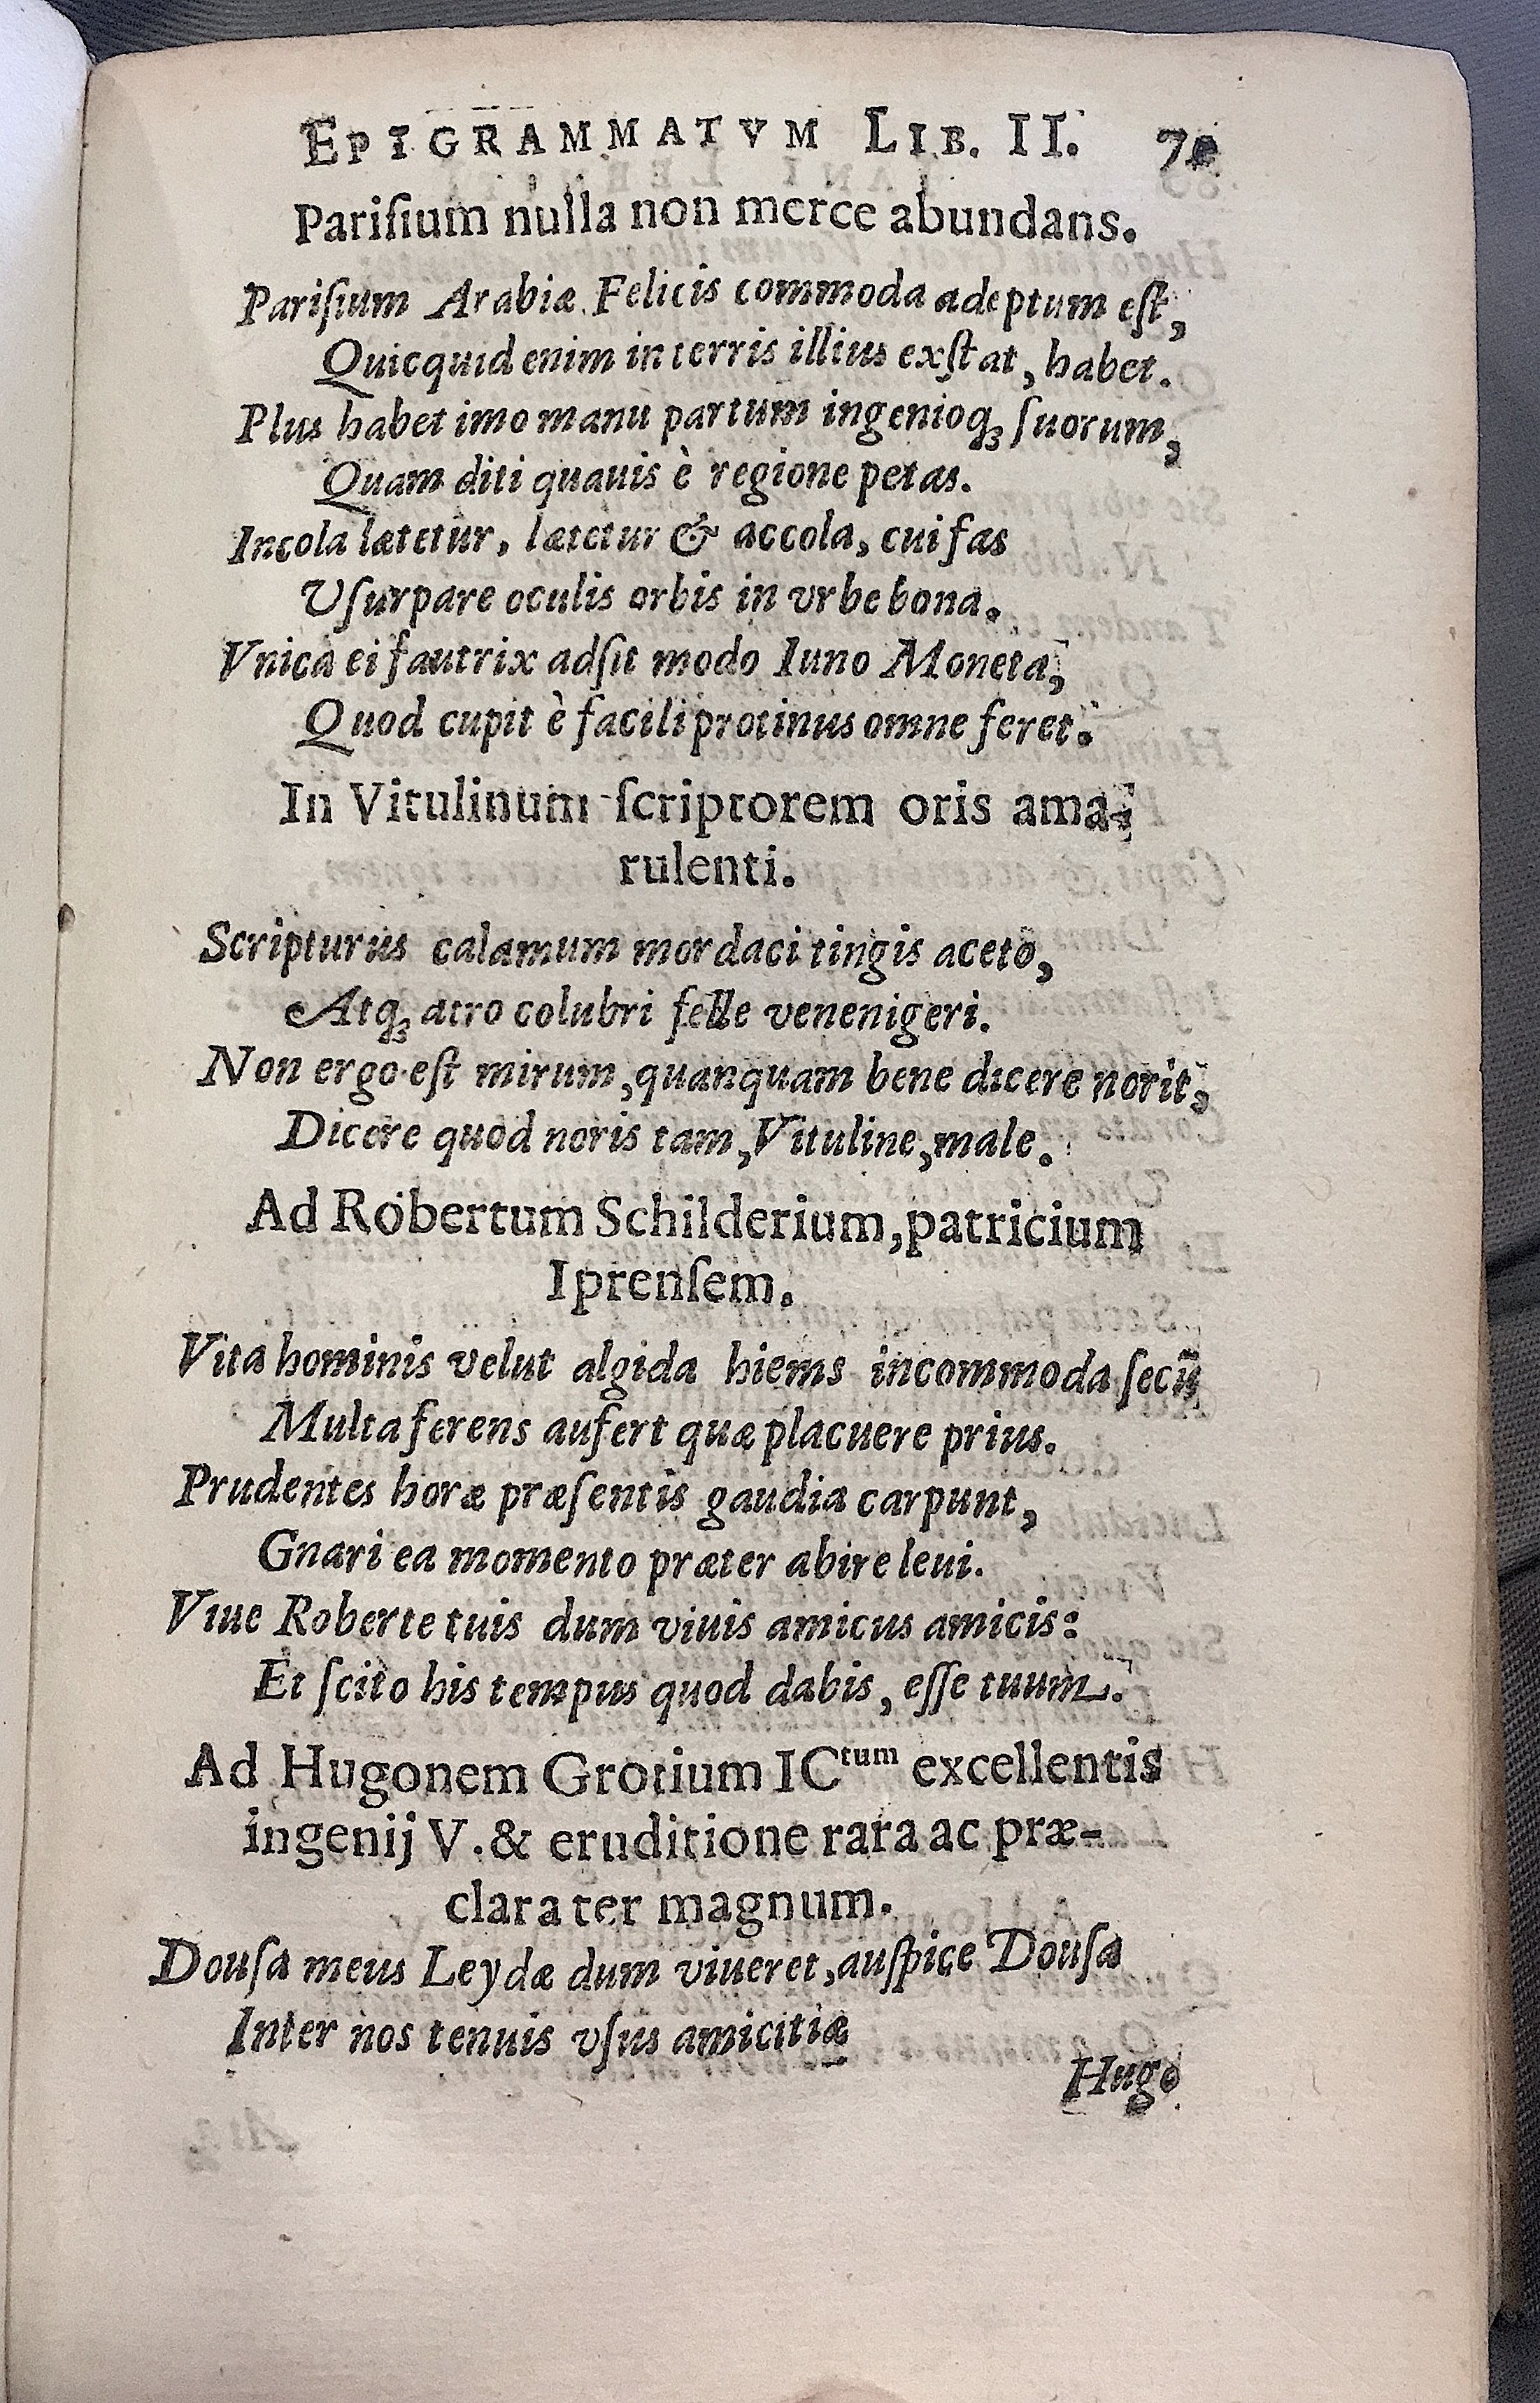 EPIGRAMMATVM LIB. II.
Pariſium nulla non merce abundans.
Pariſium Arabiæ Felicis commoda adeptum eſt,
Quicquid enim in terris illius exſtat, habet.
Plus habet imo manu partum ingenioq; ſuorum,
Quam diti quauis è regione petas.
Incola lætetur, lætetur & accola, cui fas
Uſurpare oculis orbis in vrbe bona.
Vnica ei fautrix adſit modo Iuno Moneta,
Quod cupit è facili protinus omne feret.
In Vitulinum ſcriptorem oris ama-
rulenti.
Scripturus calamum mordaci tingis aceto,
Atq; atro colubri felle venenigeri.
Non ergo eſt mirum, quanquam bene dicere norit,
Dicere quod noris tam, Vituline, male.
Ad Robertum Schilderium, patricium
Iprenſem.
Vita hominis velut algida hiems incommoda ſecũ
Multa ferens aufert quæ placuere prius.
Prudentes horæ præſentis gaudia carpunt,
Gnari ea momento præter abire leui.
Viue Roberte tuis dum viuis amicus amicis:
Et ſcito his tempus quod dabis, eſſe tuum.
Ad Hugonem Grotium ICtum excellentis
ingenij V. & eruditione rara ac præ-
clara ter magnum.
Douſa meus Leydæ dum viueret, auſpice Douſa
Inter nos tenuis vſus amicitiæ
Hugo